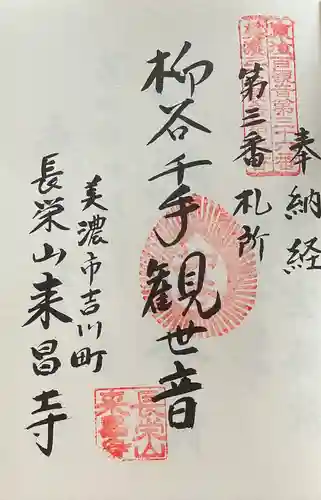 奉納経
第三番札所
柳谷千手観世音
美濃市吉川町
長栄山来昌寺
長栄山
来昌寺